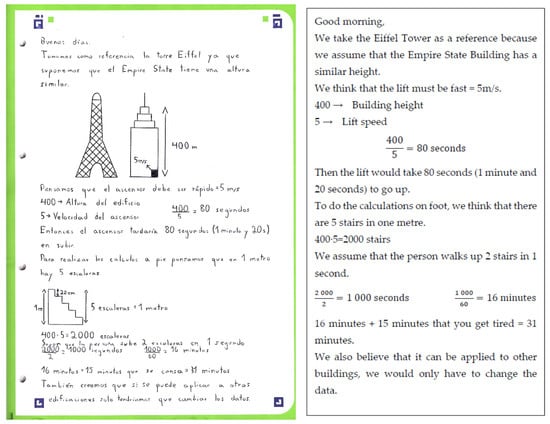 Buenos días.
Tomamos como referencia la torre Eiffel ya que
suponemos que el Empire State tiene una altura
similar.
400 m
5m/s
Pensamos que el ascensor debe ser rápido=5 m/s
400→ Altura del edificio
400/5 = 80 segundos
5→ Velocidad del ascensor
Entonces el ascensor tardaría 80 segundos (1 minuto y 20s)
en subir
Para realizar los cálculos a pie pensamos que en 1 metro
hay 5 escaleras
22cm
1m
5 escaleras = 1 metro
400·5=2000 escaleras
la persona sube 2 escaleras en 1 segundo
2000/2 = 1000 segundos 1000/60 = 16 minutos
16 minutos+15 minutos que se cansa=31 minutos
También creemos que si se puede aplicar a otras
edificaciones solo tendríamos que cambiar los datos.
Good morning,
We take the Eiffel Tower as a reference because
we assume that the Empire State Building has a
similar height.
We think that the lift must be fast = 5m/s.
400 → Building height
5 → Lift speed
400/5 = 80 seconds
Then the lift would take 80 seconds (1 minute and
20 seconds) to go up.
To do the calculations on foot, we think that there
are 5 stairs in one metre.
400·5=2000 stairs
We assume that the person walks up 2 stairs in 1
second.
2 000/2 = 1 000 seconds 1 000/60 = 16 minutes
16 minutes + 15 minutes that you get tired = 31
minutes.
We also believe that it can be applied to other
buildings, we would only have to change the
data.